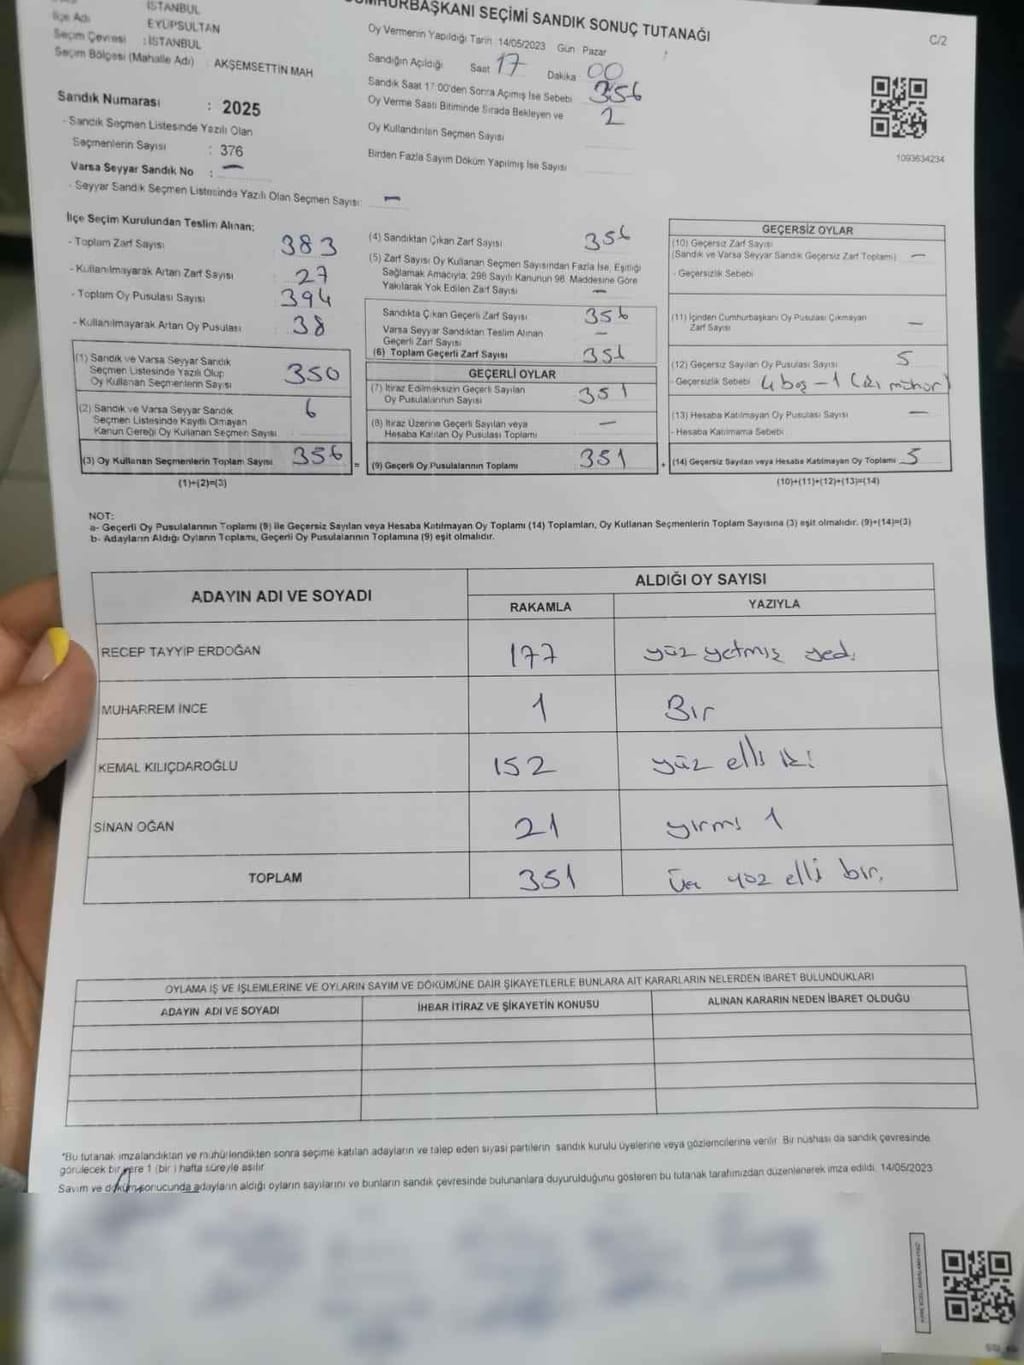 CUMHURBAŞKANI SEÇİMİ SANDIK SONUÇ TUTANAĞI
C/2
İSTANBUL
İlçe Adı EYÜPSULTAN
Seçim Çevresi : İSTANBUL
Seçim Bölgesi (Mahalle Adı) AKŞEMSETTİN MAH
Sandık Numarası : 2025
- Sandık Seçmen Listesinde Yazılı Olan
Seçmenlerin Sayısı : 376
Varsa Seyyar Sandık No : —
- Seyyar Sandık Seçmen Listesinde Yazılı Olan Seçmen Sayısı: —
Oy Vermenin Yapıldığı Tarih 14/05/2023 Gün Pazar
Sandığın Açıldığı Saat 17 Dakika 00
Sandık Saat 17:00'den Sonra Açmış İse Sebebi 356
Oy Verme Saati Bitiminde Sırada Bekleyen ve 2
Oy Kullandırılan Seçmen Sayısı
Birden Fazla Sayım Döküm Yapılmış İse Sayısı
1093634234
İlçe Seçim Kurulundan Teslim Alınan;
- Toplam Zarf Sayısı 383
- Kullanılmayarak Artan Zarf Sayısı 27
- Toplam Oy Pusulası Sayısı 394
- Kullanılmayarak Artan Oy Pusulası 38
(1) Sandık ve Varsa Seyyar Sandık
Seçmen Listesinde Yazılı Olup
Oy Kullanan Seçmenlerin Sayısı 350
(2) Sandık ve Varsa Seyyar Sandık
Seçmen Listesinde Kayıtlı Olmayan
Kanun Gereği Oy Kullanan Seçmen Sayısı 6
(3) Oy Kullanan Seçmenlerin Toplam Sayısı 356 =
(1)+(2)=(3)
(4) Sandıktan Çıkan Zarf Sayısı 356
(5) Zarf Sayısı Oy Kullanan Seçmen Sayısından Fazla İse, Eşitliği
Sağlamak Amacıyla; 298 Sayılı Kanunun 98. Maddesine Göre
Yakılarak Yok Edilen Zarf Sayısı —
Sandıkta Çıkan Geçerli Zarf Sayısı 356
Varsa Seyyar Sandıktan Teslim Alınan
Geçerli Zarf Sayısı —
(6) Toplam Geçerli Zarf Sayısı 356
GEÇERLİ OYLAR
(7) İtiraz Edilmeksizin Geçerli Sayılan
Oy Pusulalarının Sayısı 351
(8) İtiraz Üzerine Geçerli Sayılan veya
Hesaba Katılan Oy Pusulası Toplamı —
(9) Geçerli Oy Pusulalarının Toplamı 351 +
GEÇERSİZ OYLAR
(10) Geçersiz Zarf Sayısı
(Sandık ve Varsa Seyyar Sandık Geçersiz Zarf Toplamı) —
- Geçersizlik Sebebi
(11) İçinden Cumhurbaşkanı Oy Pusulası Çıkmayan
Zarf Sayısı —
(12) Geçersiz Sayılan Oy Pusulası Sayısı 5
- Geçersizlik Sebebi 4 boş – 1 (iki mühür)
(13) Hesaba Katılmayan Oy Pusulası Sayısı —
- Hesaba Katılmama Sebebi
(14) Geçersiz Sayılan veya Hesaba Katılmayan Oy Toplamı 5
(10)+(11)+(12)+(13)=(14)
NOT:
a- Geçerli Oy Pusulalarının Toplamı (9) ile Geçersiz Sayılan veya Hesaba Katılmayan Oy Toplamı (14) Toplamları, Oy Kullanan Seçmenlerin Toplam Sayısına (3) eşit olmalıdır. (9)+(14)=(3)
b- Adayların Aldığı Oyların Toplamı, Geçerli Oy Pusulalarının Toplamına (9) eşit olmalıdır.
ADAYIN ADI VE SOYADI ALDIĞI OY SAYISI
RAKAMLA YAZIYLA
RECEP TAYYİP ERDOĞAN 177 yüz yetmiş yedi
MUHARREM İNCE 1 Bir
KEMAL KILIÇDAROĞLU 152 yüz elli iki
SİNAN OĞAN 21 yirmi 1
TOPLAM 351 Üç yüz elli bir.
OYLAMA İŞ VE İŞLEMLERİNE VE OYLARIN SAYIM VE DÖKÜMÜNE DAİR ŞİKAYETLERLE BUNLARA AİT KARARLARIN NELERDEN İBARET BULUNDUKLARI
ADAYIN ADI VE SOYADI İHBAR İTİRAZ VE ŞİKAYETİN KONUSU ALINAN KARARIN NEDEN İBARET OLDUĞU
*Bu tutanak imzalandıktan ve mühürlendikten sonra seçime katılan adayların ve talep eden siyasi partilerin sandık kurulu üyelerine veya gözlemcilerine verilir. Bir nüshası da sandık çevresinde
görülecek bir yere 1 (bir) hafta süreyle asılır
Sayım ve döküm sonucunda adayların aldığı oyların sayılarını ve bunların sandık çevresinde bulunanlara duyurulduğunu gösteren bu tutanak tarafımızdan düzenlenerek imza edildi. 14/05/2023